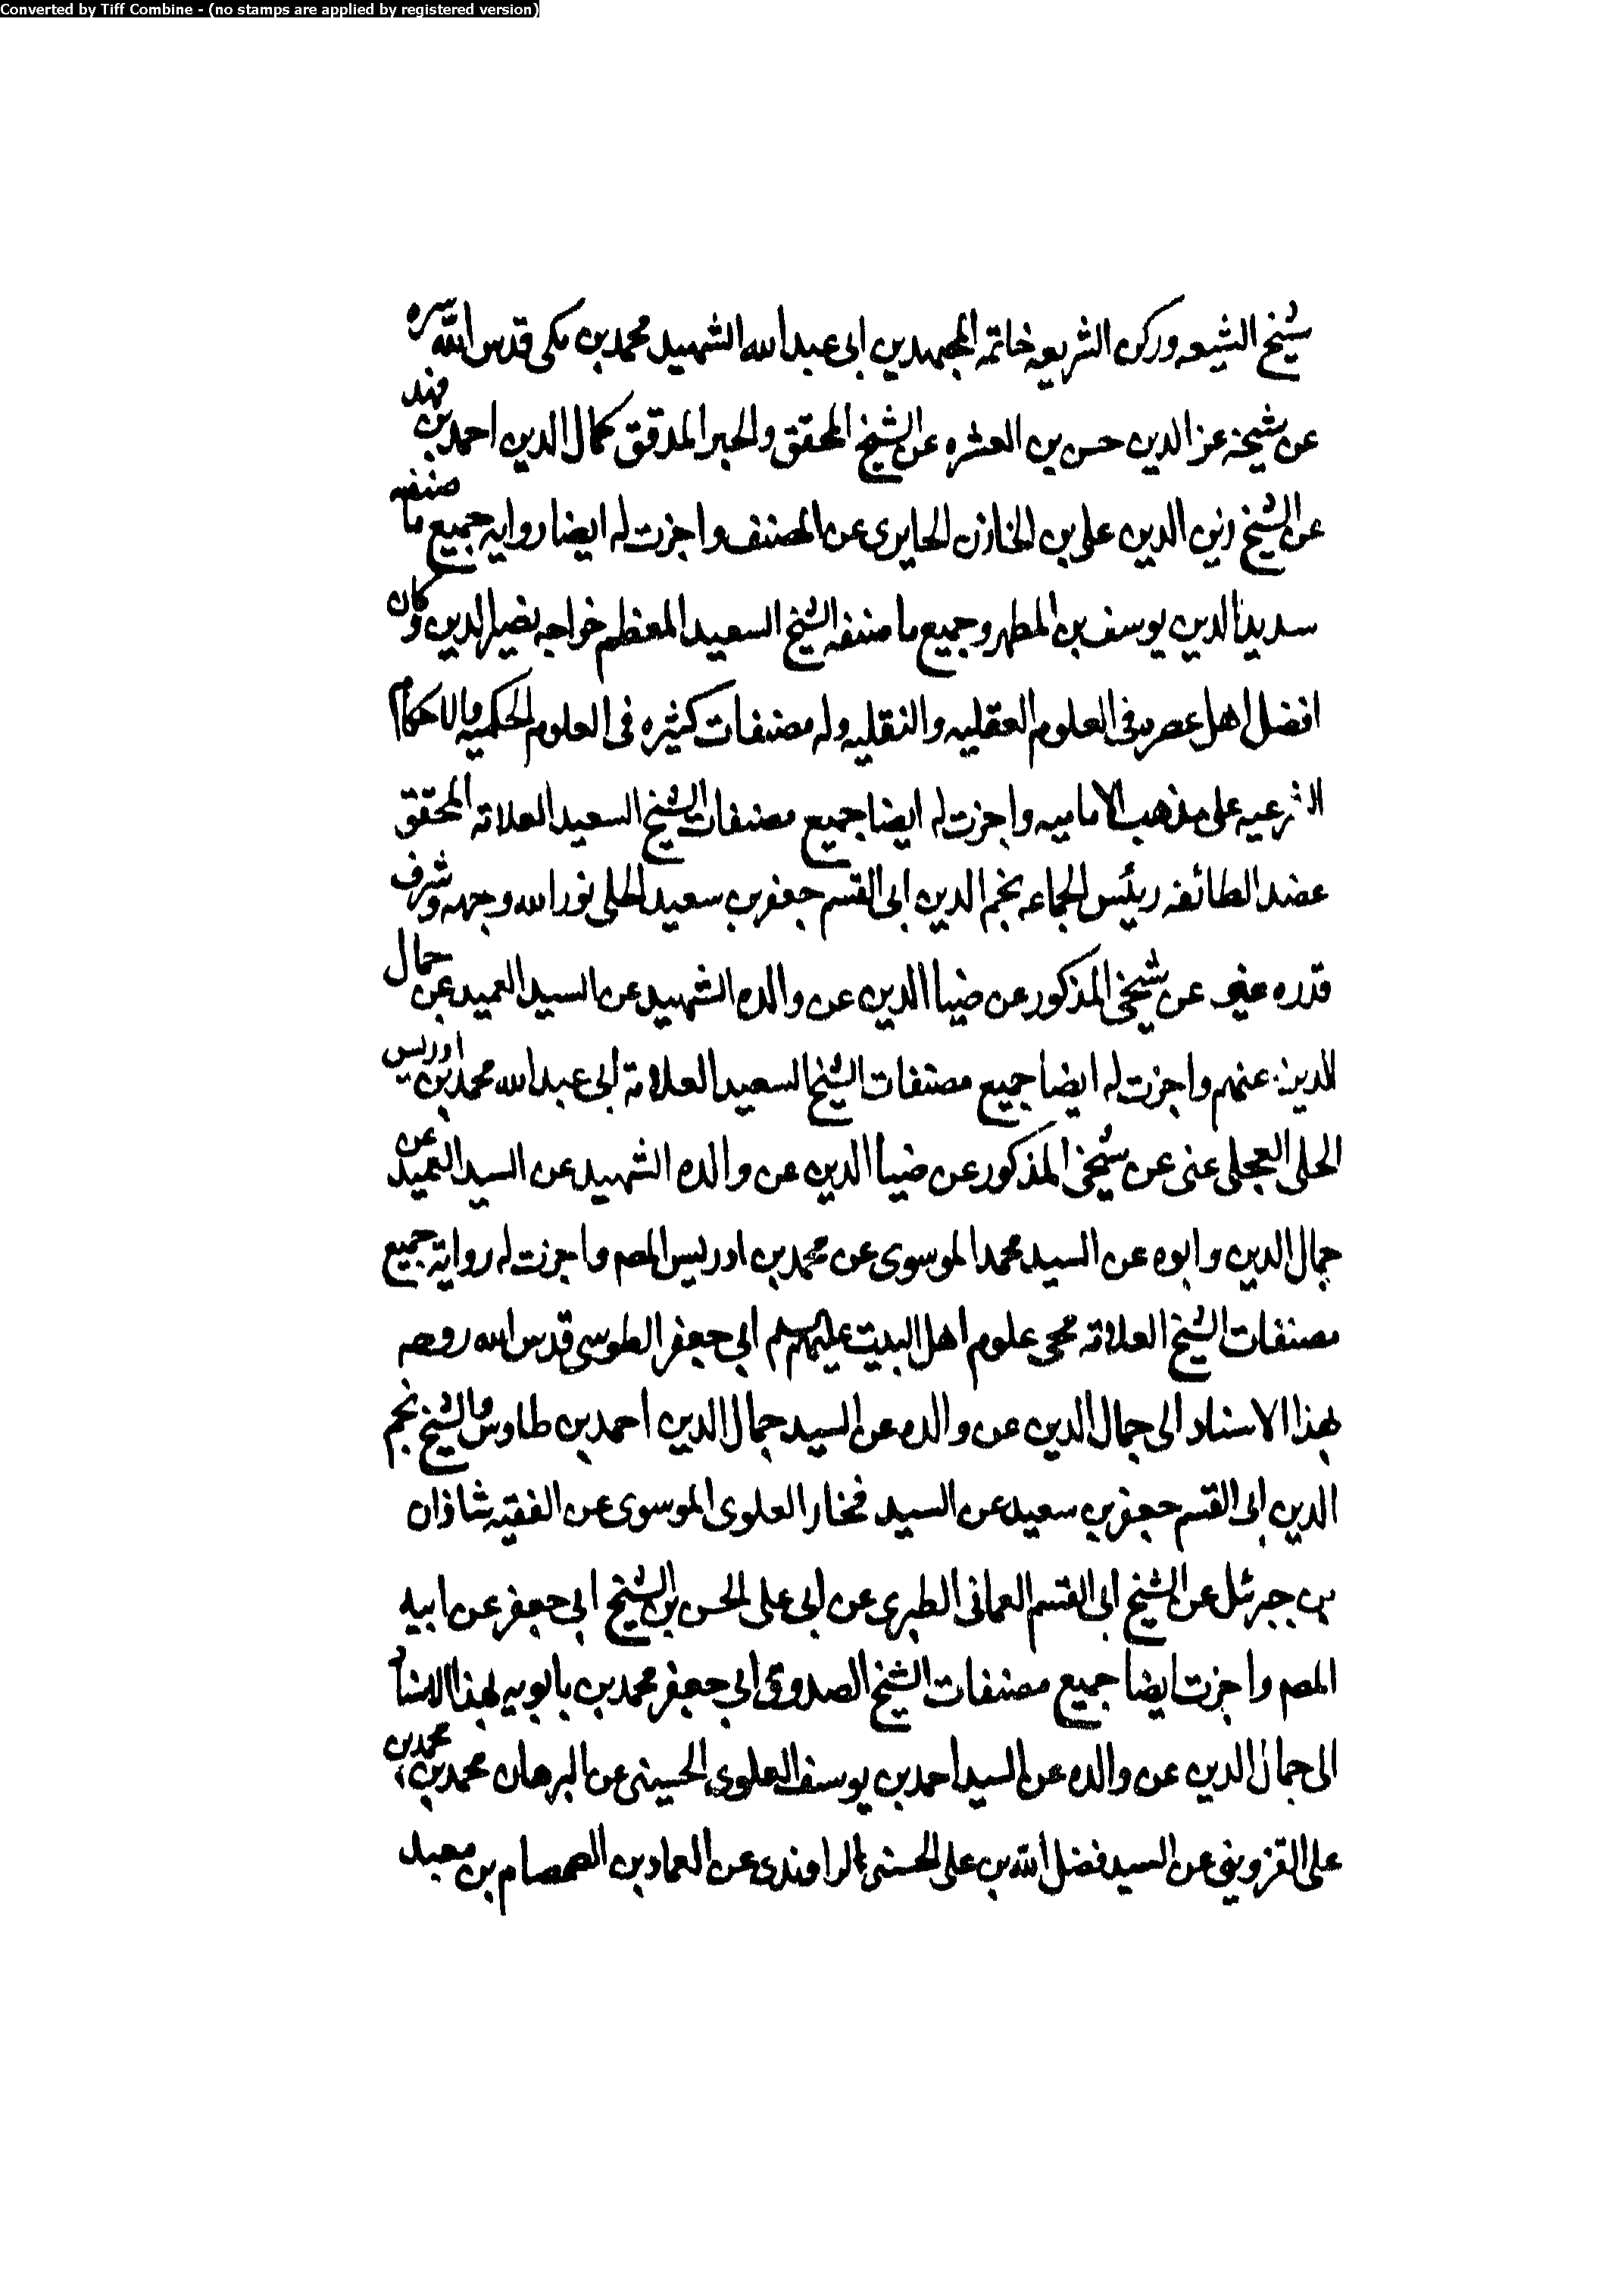 Converted by Tiff Combine - (no stamps are applied by registered version)
شيخ الشيعه وركن الشريعه خاتمه المجتهدين ابى عبد الله الشهيد محمد بن مكى قدس الله سره
عن شيخه عز الدين حسن بن العشره عن الشيخ المحقق والحبر المدقق كمال الدين احمد بن فهد
عن الشيخ زين الدين على بن الخازن الحايرى عن المصنف واجزت له ايضا روايه جميع ما صنفه
سديد الدين يوسف بن المطهر وجميع ما صنفه الشيخ السعيد المعظم خواجه نصير الدين وكان
افضل اهل عصره فى العلوم العقليه والنقليه وله مصنفات كثيره فى العلوم الحكميه والاحكام
الشرعيه على مذهب الاماميه واجزت له ايضا جميع مصنفات الشيخ السعيد العلامه المحقق
عضد الطائفه رئيس الجماعه نجم الدين ابى القسم جعفر بن سعيد الحلى نور الله وجهه وشرف
قدره عنى عن شيخى المذكور عن ضيا الدين عن والده الشهيد عن السيد العميد عن جمال
الدين عنهم واجزت له ايضا جميع مصنفات الشيخ السعيد العلامة ابى عبد الله محمد بن ادريس
الحلى العجلى عنى عن شيخى المذكور عن ضيا الدين عن والده الشهيد عن السيد العميد عن
جمال الدين وابوه عن السيد محمد الموسوى عن محمد بن ادريس المصم واجزت له رواية جميع
مصنفات الشيخ العلامه محى علوم اهل البيت عليهم سلم ابي جعفر الطوسى قدس الله روحه
بهذا الاسناد الى جمال الدين عن والده عن السيد جمال الدين احمد بن طاوس والشيخ نجم
الدين ابى القسم جعفر بن سعيد عن السيد فخار العلوى الموسوى عن الفقيه شاذان
بن جبرئل عن الشيخ ابى القسم العمانى الطبرى عن ابى على الحسن بن الشيخ ابي جعفر عن ابيه
المصم واجزت ايضا جميع مصنفات الشيخ الصدوق ابي جعفر محمد بن بابويه بهذا الاسناد
الى جمال الدين عن والده عن السيد احمد بن يوسف العلوى الحسينى عن البرهان محمد بن محمد بن
على القزوينى عن السيد فضل الله بن على الحسنى الراوندى عن العماد بن الصمصام بن معبد